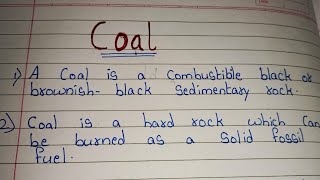 Coal
1) A Coal is a Combustible black or
brownish- black Sedimentary rock.
2) Coal is a hard rock which Can
be burned as a Solid fossil
fuel.